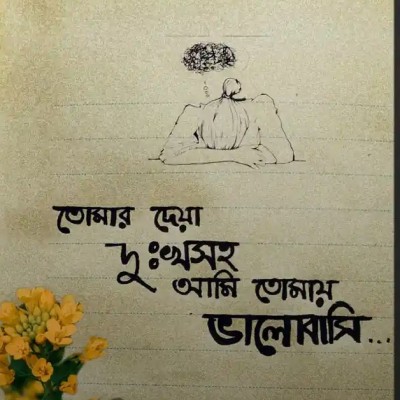 তোমার দেয়া
দুঃখসহ
আমি তোমায়
ভালোবাসি...